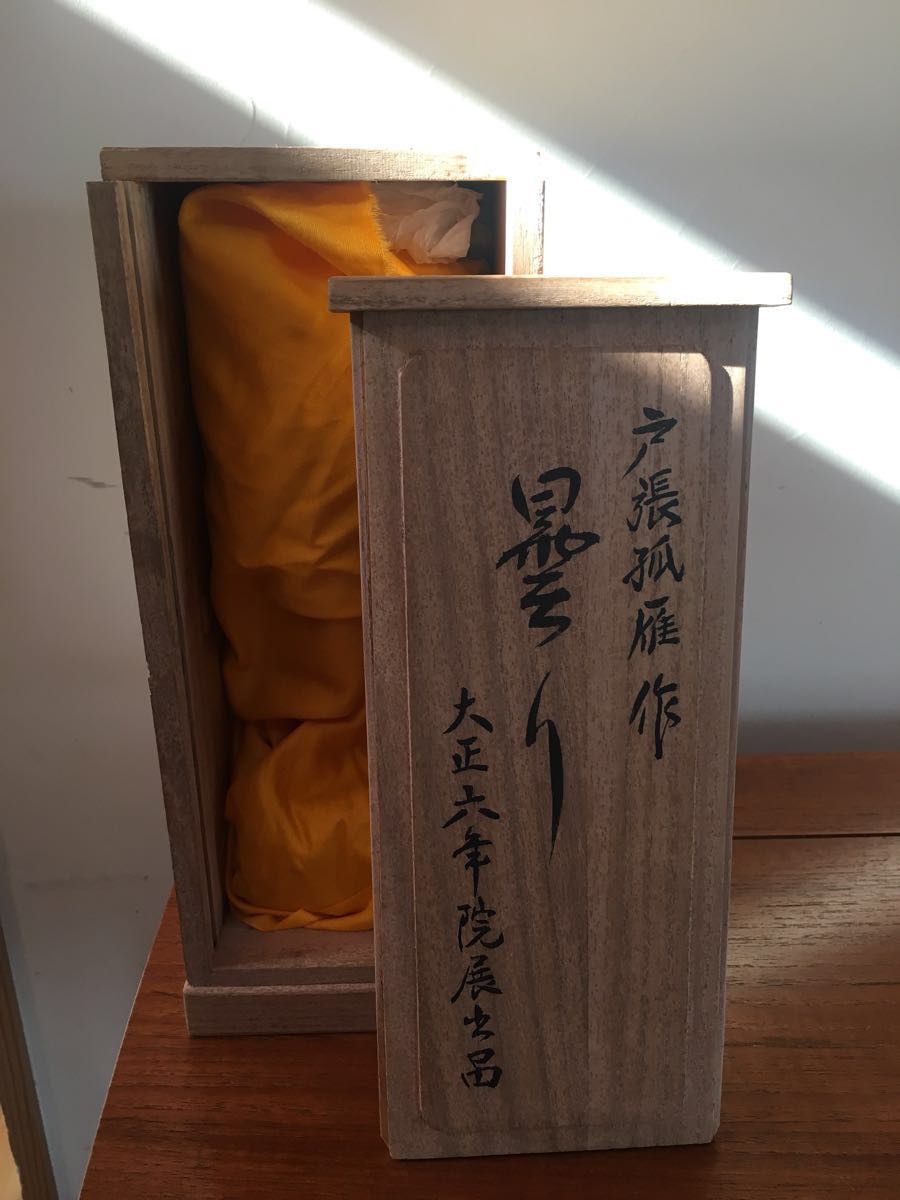 戸張孤雁作
曇り
大正六年院展出品